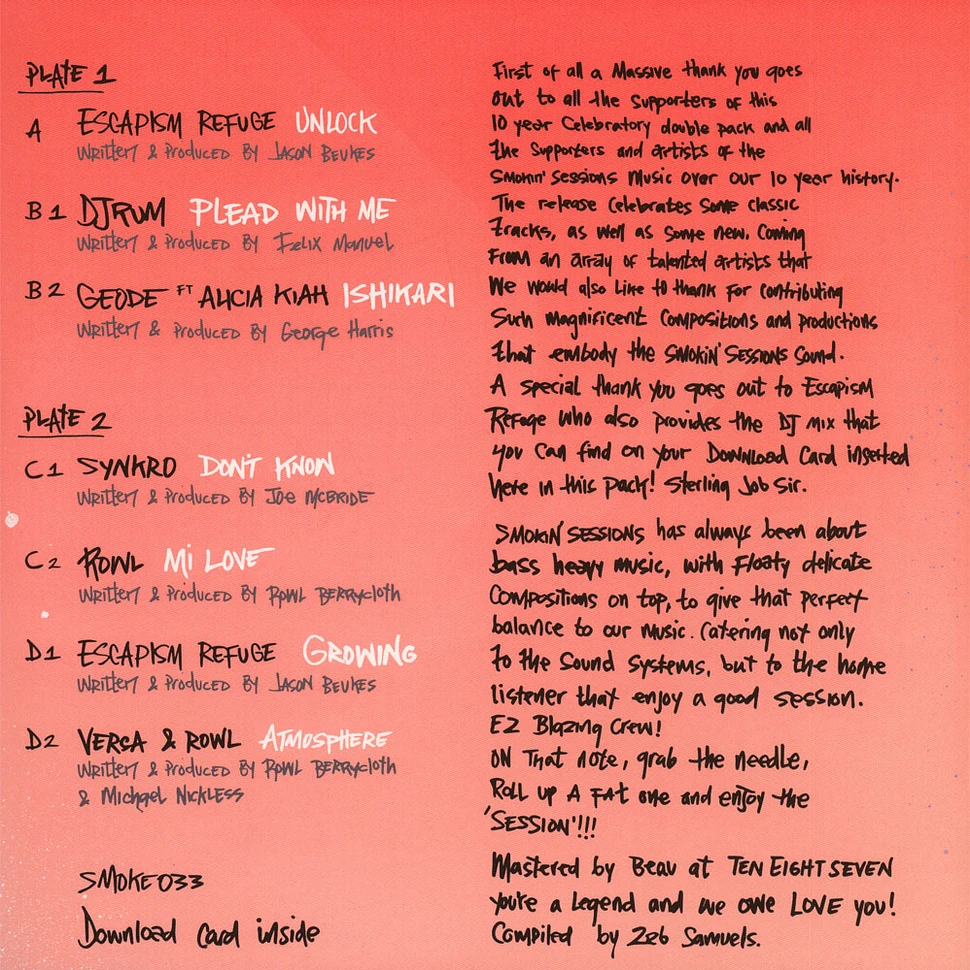 PLATE 1
A ESCAPISM REFUGE UNLOCK
Written & Produced By Jason Beukes
B1 DJRUM PLEAD WITH ME
Written & Produced By Felix Manuel
B2 GEODE FT ALICIA KIAH ISHIKARI
Written & Produced By George Harris
PLATE 2
C1 SYNKRO DON'T KNOW
Written & Produced By Joe McBride
C2 ROWL Mi LOVE
Written & Produced By Rowl Berrycloth
D1 ESCAPISM REFUGE GROWING
Written & Produced By Jason Beukes
D2 VERCA & ROWL ATMOSPHERE
Written & Produced By Rowl Berrycloth
& Michael Nickless
SMOKE033
Download card inside
First of all a Massive thank you goes
out to all the supporters of this
10 year Celebratory double pack and all
the supporters and artists of the
Smokin' Sessions Music over our 10 year history.
The release Celebrates some classic
tracks, as well as some new. Coming
From an array of talented artists that
We would also Like to thank for contributing
Such magnificent Compositions and productions
that embody the SMOKIN' SESSIONS Sound.
A special thank you goes out to Escapism
Refuge who also provides the DJ mix that
you can find on your Download Card inserted
here in this pack! Sterling Job Sir.
SMOKIN' SESSIONS has always been about
bass heavy music, with Floaty delicate
Compositions on top, to give that perfect
balance to our Music. Catering not only
to the Sound Systems, but to the home
listener that enjoy a good session.
EZ Blazing Crew!
ON That note, grab the needle,
Roll up A FAt one and enjoy the
'SESSION'!!!
Mastered by Beau at TEN EIGHT SEVEN
you're a Legend and we owe LOVE you!
Compiled by Zeb Samuels.